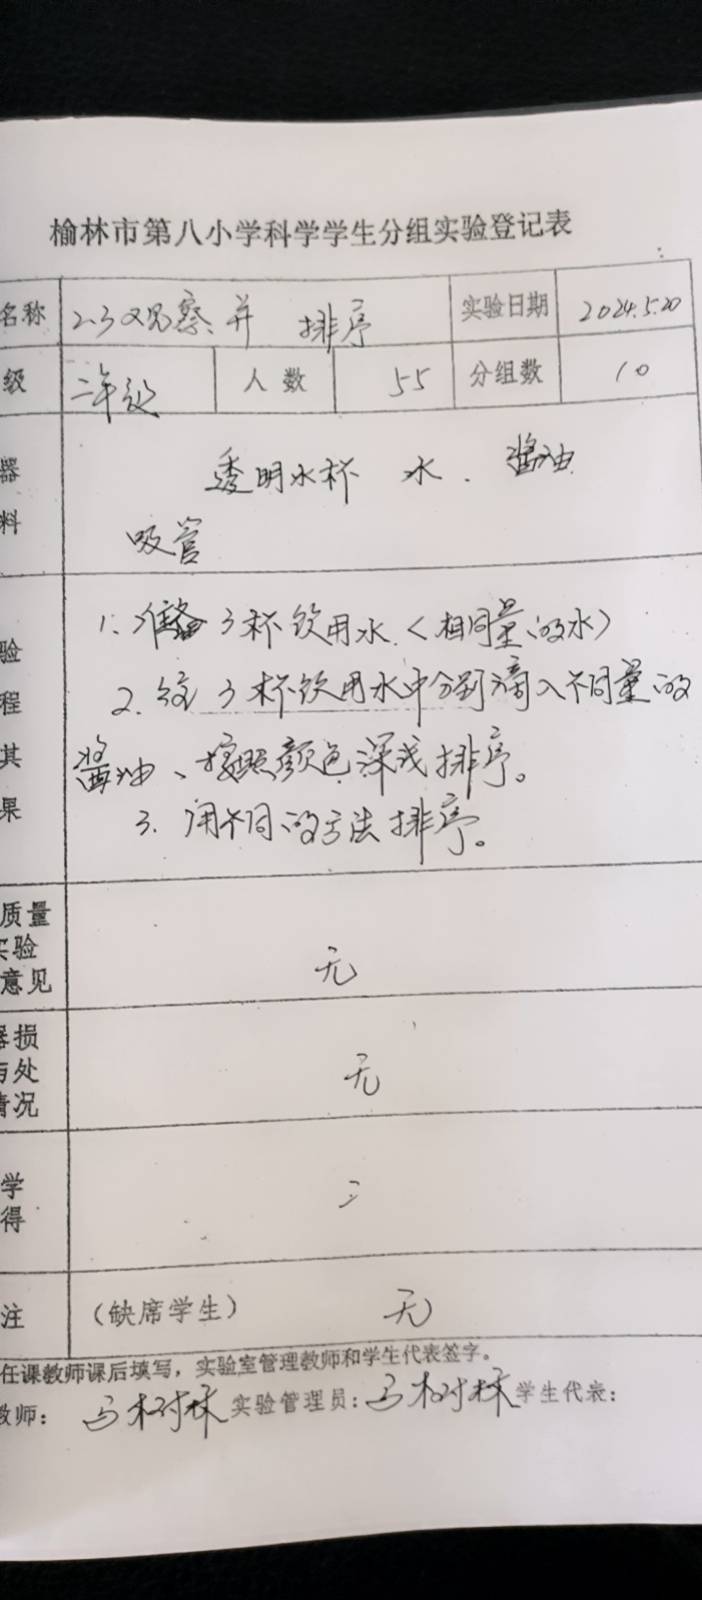 榆林市第八小学科学学生分组实验登记表
名称 2.3观察并 排序 实验日期 2024.5.20
级 二年级 人数 55 分组数 10
器 透明水杯 水、酱油
料 吸管
1、准备3杯饮用水<相同量的水>
验 2、给3杯饮用水中分别滴入不同量的
程 酱油、按照颜色深浅排序。
其 3、用不同的方法排序。
果
质量
实验 无
意见
器损
与处 无
情况
学
得
注 (缺席学生) 无
任课教师课后填写,实验室管理教师和学生代表签字。
教师: 马树林 实验管理员: 马树林 学生代表: